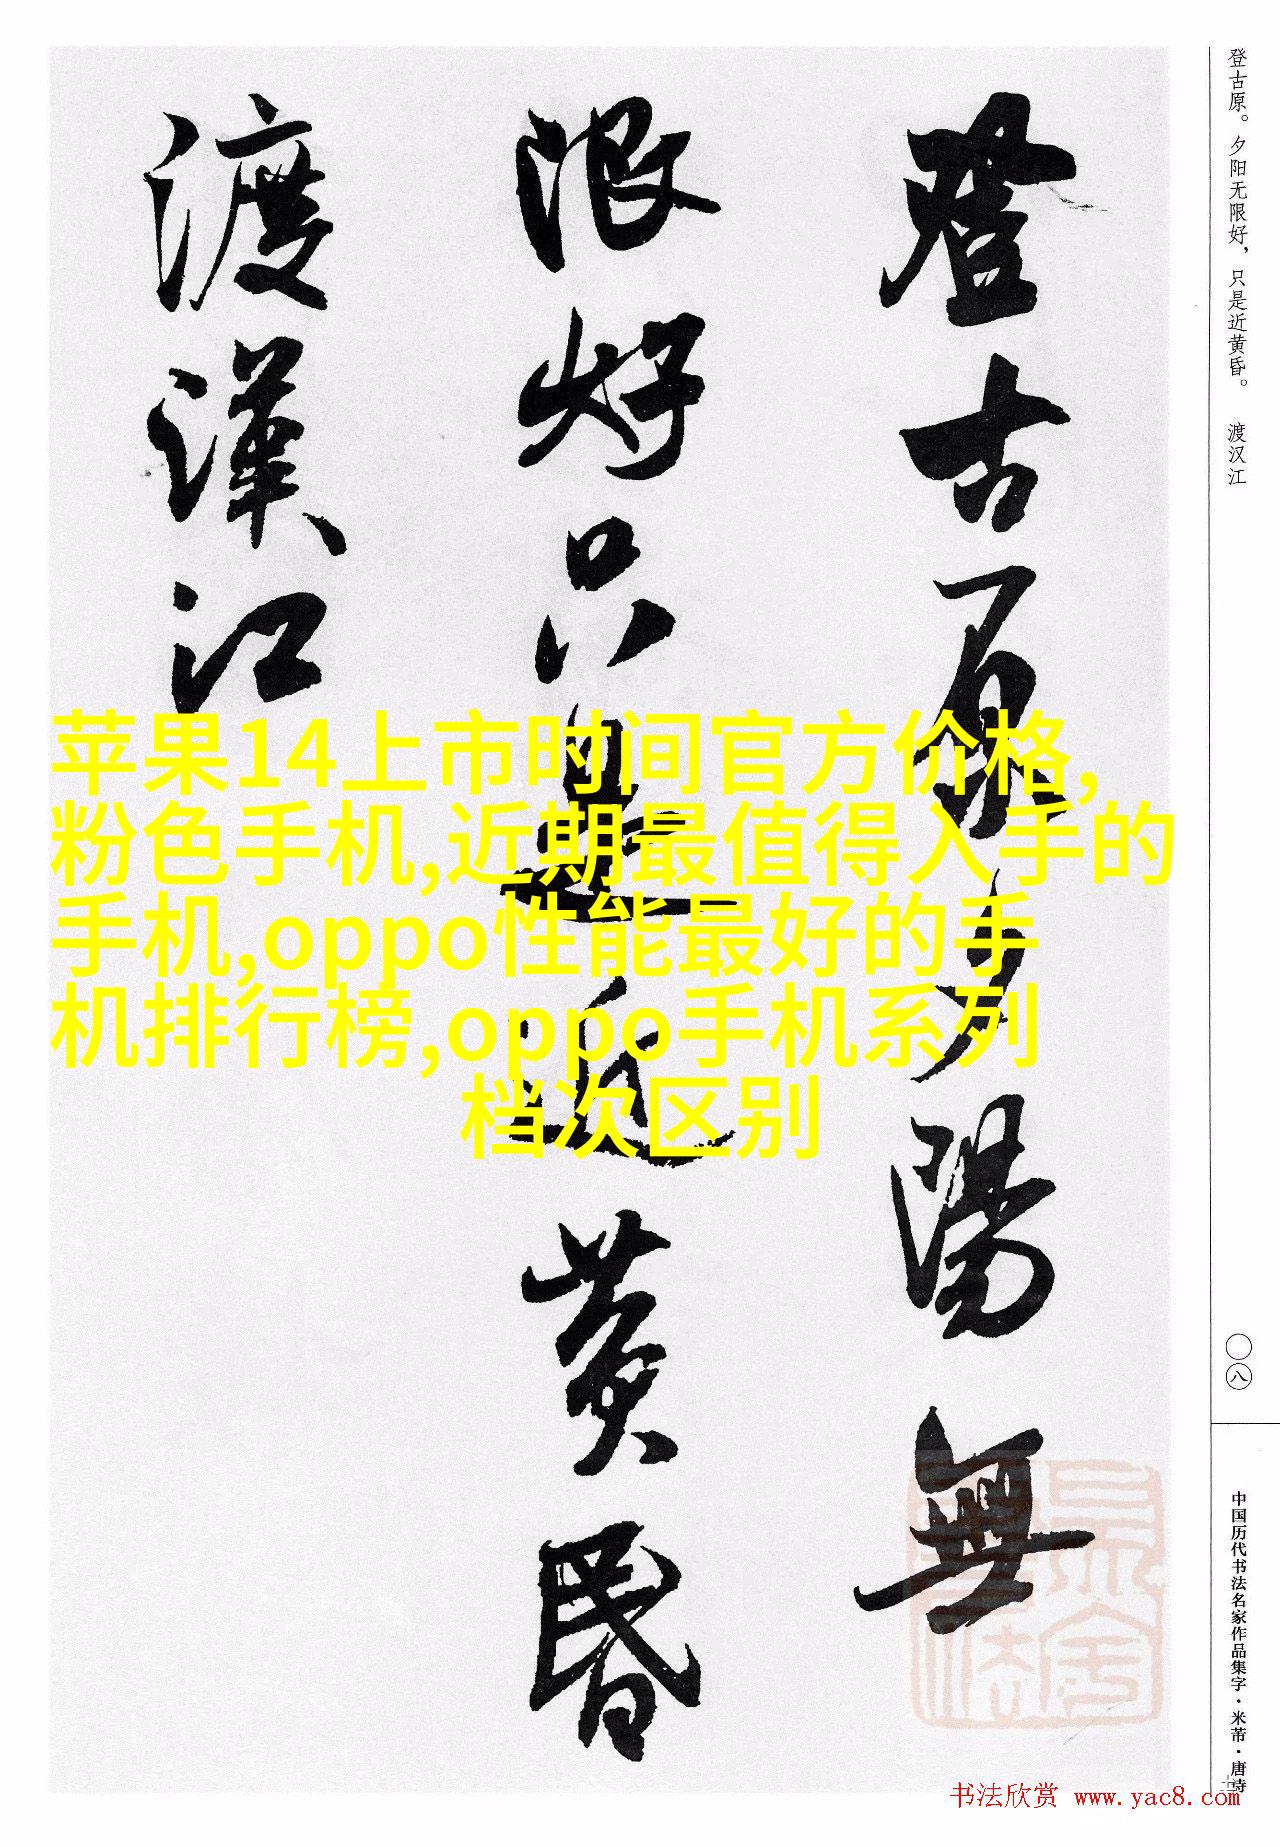 登古原夕陽無
限好只是近黄昏
渡漢江
登古原。夕阳无限好，只是近黄昏。 渡汉江
苹果14上市时间官方价格,
粉色手机,近期最值得入手的
手机,oppo性能最好的手
机排行榜,oppo手机系列
档次区别
〇八
中国历代书法名家作品集字·米芾·唐诗
书法欣赏 www.yac8.com